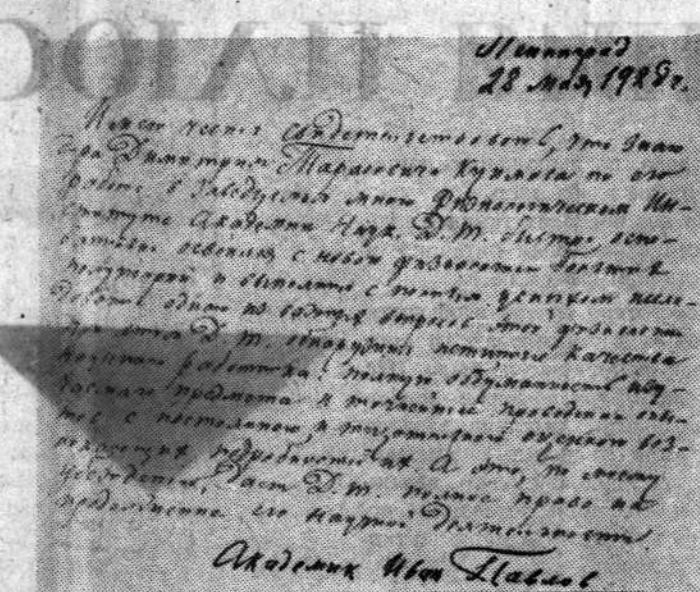 Ленинград
28 мая, 1928 г.
Имею честь свидетельствовать, что знаю
д-ра Димитрия Тарасовича Куимова по его
работе в заведуемом мною Физиологическом Ин-
ституте Академии Наук. Д. Т. быстро, осно-
вательно освоился с новой физиологией больших
полушарий и выполнил с полным успехом иссле-
дование одного из вопросов этой физиологии
При этом Д. Т. обнаружил истинные качества
научного работника: полную обдуманность изу-
чаемого предмета и точнейшее проведение опы-
тов с постоянною и тщательной оценкой
подробностей их. А это, по моему
убеждению, дает Д. Т. полное право на
продолжение его научной деятельности.
Академик Иван Павлов